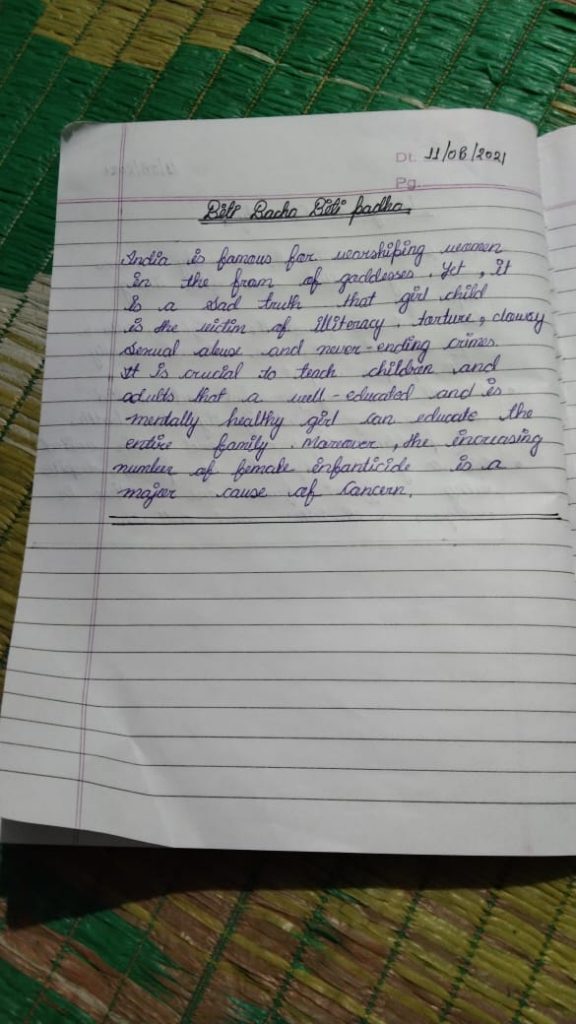 Dt. 11/08/2021
Pg.
Beti Bacho Beti padho.
India is famous for worshiping women
in the fram of goddesses. Yet, it
is a sad truth that girl child
is the victim of illiteracy, torture, dowry
sexual abuse and never-ending crimes.
It is crucial to teach children and
adults that a well-educated and is
mentally healthy girl can educate the
entire family. Moreover, the increasing
number of female infanticide is a
major cause of Concern.